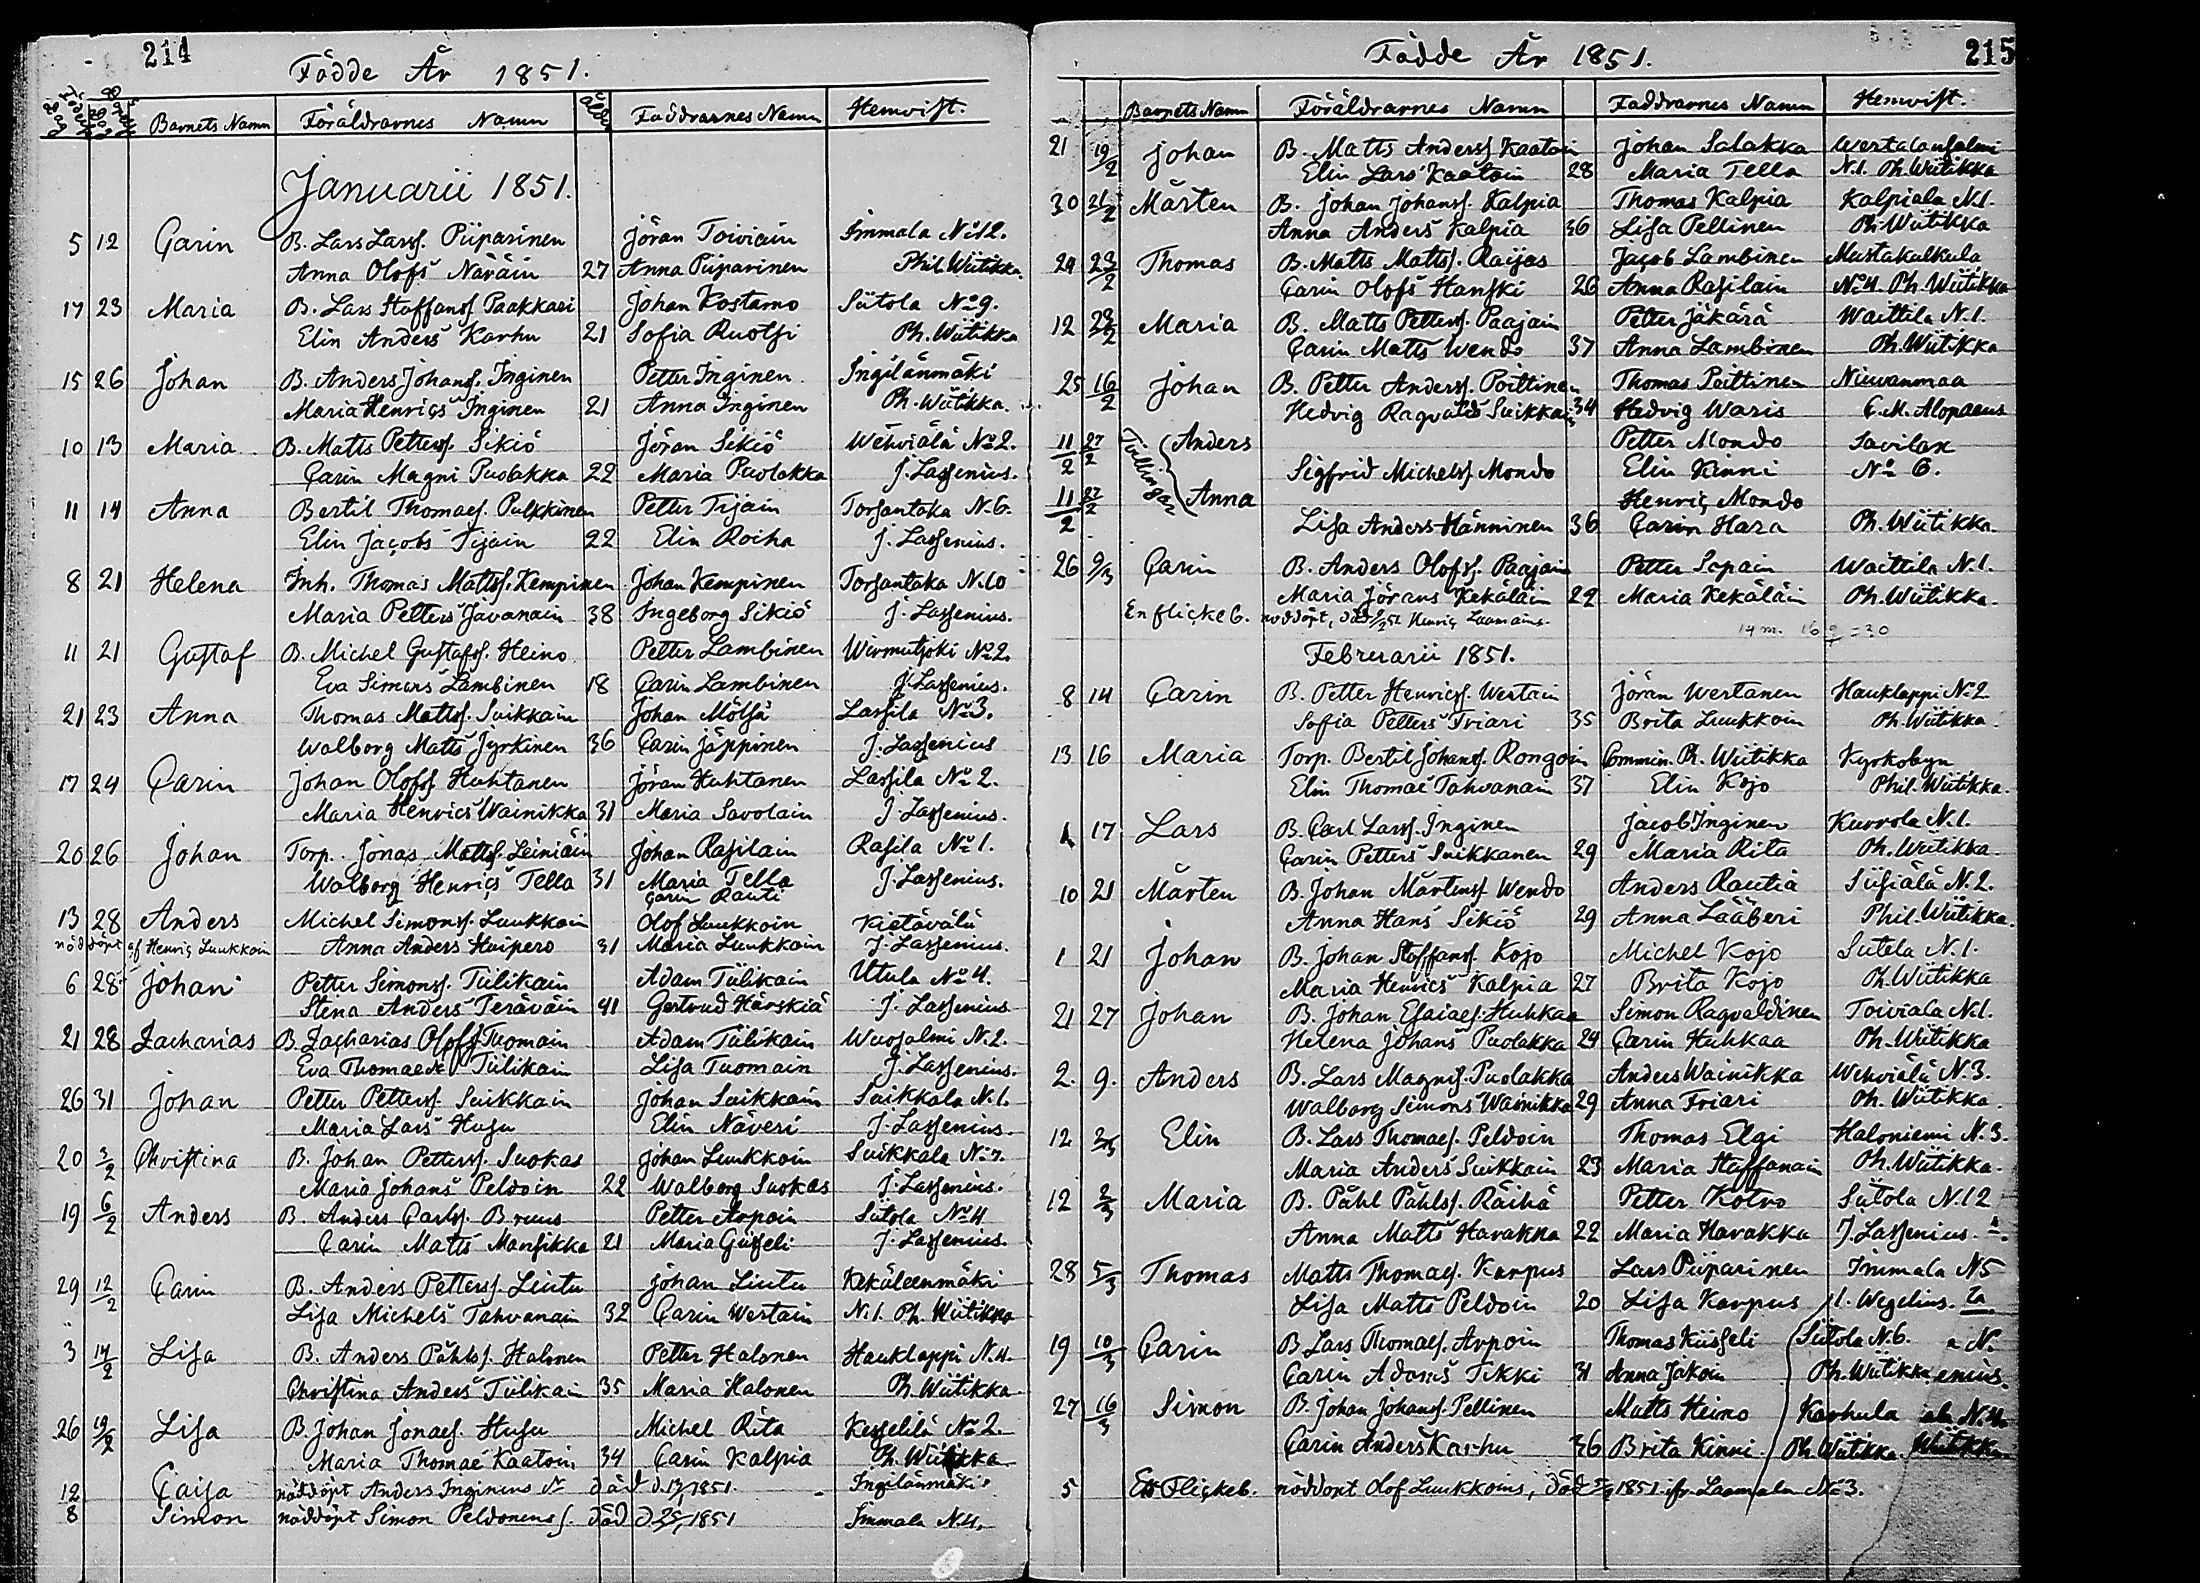 214
Födde År 1851.
Barnets Namn Föräldrarnes Namn Ålder Faddrarnes Namn Hemvist.
Januarii 1851.
5 12 Carin B. Lars Larss. Piiparinen Jöran Toiviain Immala No 12.
Anna Olofs Näräin 27 Anna Piiparinen Phil. Wiitikka
17 23 Maria B. Lars Staffanss. Paakkari Johan Kostamo Siitola No 9.
Elin Anders Karhu 21 Sofia Ruotsi Ph. Wiitikka
15 26 Johan B. Anders Johanss. Inginen Petter Inginen Ingilänmäki
Maria Henrics Inginen 21 Anna Inginen Ph. Wiitikka.
10 13 Maria B. Matts Petterss. Sikiö Jöran Sikiö Wehviälä No 2.
Carin Magni Puolakka 22 Maria Puolakka J. Lassenius.
11 14 Anna Bertil Thomass. Pulkkinen Petter Tijäin Torsantaka N. 6.
Elin Jacobs Tijäin 22 Elin Roiha J. Lassenius.
8 21 Helena Inh. Thomas Mattss. Kempinen Johan Kempinen Torsantaka N. 10
Maria Petters Javanain 38 Ingeborg Sikiö J. Lassenius.
11 21 Gustaf B. Michel Gustafs. Heino Petter Lambinen Wirmutjoki No 2.
Eva Simons Lambinen 18 Carin Lambinen J. Lassenius.
21 23 Anna Thomas Mattss. Suikkain Johan Mölsä Lassila No 3.
Walborg Matts Jyrkinen 36 Carin Jäppinen J. Lassenius
17 24 Carin Johan Olofss Huhtanen Jöran Huhtanen Lassila No 2.
Maria Henrics Wainikka 31 Maria Savolain J. Lassenius.
20 26 Johan Torp. Jonas Mattss. Leiniäin Johan Rasilain Rasila No 1.
Walborg Henrics Tella 31 Maria Tella J. Lassenius.
Carin Rauti
13 28 Anders Michel Simonss. Luukkain Olof Luukkoin Kietävälä
nöddöpt af Henric Luukkain Anna Anders Huipero 31 Maria Luukkain J. Lassenius.
6 28 Johan Petter Simonss. Tiilikain Adam Tiilikain Utula No 4.
Stina Anders Teräväin 41 Gertrud Härskiä J. Lassenius
21 28 Zacharias B. Zacharias Olofss Tuomain Adam Tiilikain Wuosalmi N. 2.
Eva Thomae Tiilikain Lisa Tuomain J. Lassenius.
26 31 Johan Petter Petterss. Suikkain Johan Suikkain Suikkala N. 1.
Maria Lars Husu Elin Näveri J. Lassenius.
20 3/2 Christina B. Johan Petterss. Suokas Johan Luukkoin Suikkala N. 7.
Maria Johans Peldoin 22 Walborg Suokas J. Lassenius.
19 6/2 Anders B. Anders Carlss. Bruus Petter Arpoin Siitola No 4
Carin Matts Mansikka 21 Maria J. Lassenius.
29 12/2 Carin B. Anders Petterss. Liutu Johan Liutu Kekäleenmäki
Lisa Michels Tahvanain 32 Carin Wertain N. 1. Ph. Wiitikka
3 14/2 Lisa B. Anders Påhlss. Halonen Petter Halonen Hauklappi N. 4.
Christina Anders Tiilikain 35 Maria Halonen Ph. Wiitikka
26 19/2 Lisa B. Johan Jonaes. Husu Michel Rita Kesselilä No 2.
Maria Thomae Kaatoin 34 Carin Kalpia Ph. Wiitikka
12 Caisa nöddöpt Anders Inginens död d. 1851. Ingilänmäki
8 Simon nöddöpt Simon Peldonens s. död d. 1851 Immala N. 4.
215
Födde År 1851.
Barnets Namn Föräldrarnes Namn Faddrarnes Namn Hemvist.
21 19/2 Johan B. Matts Anderss Kaatoin Johan Salakka Wertalansalmi
Elin Lars Kaatoin 28 Maria Tella N. 1. Ph. Wiitikka
30 21/2 Mårten B. Johan Johanss. Kalpia Thomas Kalpia Kalpiala N. 1.
Anna Anders Kalpia 36 Lisa Pellinen Ph. Wiitikka
29 23/2 Thomas B. Matts Mattss. Raijas Jacob Lambinen Mustakulkula
Carin Olofs Hanski 26 Anna Rasilain No 4. Ph. Wiitikka
12 23/2 Maria B. Matts Petterss. Paajain Petter Jäkärä Waittila N. 1.
Carin Matts Wendo 37 Anna Lambinen Ph. Wiitikka
25 16/2 Johan B. Petter Anderss. Poittinen Thomas Poittinen Niuvanmaa
Hedvig Ragvalds Suikkain 34 Hedvig Waris C. M. Alopaeus
Tvillingar
11/2 27/2 Anders Petter Mondo Savilax
Sigfrid Michelss Mondo Elin Kinni No 6.
11/2 27/2 Anna Henric Mondo
Lisa Anders Hänninen 36 Carin Hara Ph. Wiitikka.
26 9/3 Carin B. Anders Olofss. Paajain Petter Sopain Waittila N. 1.
Maria Jörans Kekäläin 22 Maria Kekäläin Ph. Wiitikka.
En flickeb. nöddöpt, död Henric Laamains.
14 m. 16 = 30
Februarii 1851.
8 14 Carin B. Petter Henricss. Wertain Jöran Wertanen Hauklappi No 2
Sofia Petters Friari 35 Brita Luukkoin Ph. Wiitikka.
13 16 Maria Torp. Bertil Johanss. Rongoin Commin. Ph. Wiitikka Kyrkobyn
Elin Thomae Tahvanain 37 Elin Kojo Phil. Wiitikka.
17 Lars B. Carl Larss. Inginen Jacob Inginen Kurrola N. 1.
Carin Petters Suikkanen 29 Maria Rita Ph. Wiitikka.
10 21 Mårten B. Johan Mårtenss. Wendo Anders Rautia Siisiälä N. 2.
Anna Hans Sikiö 29 Anna Lääberi Phil. Wiitikka.
1 21 Johan B. Johan Staffanss. Kojo Michel Kojo Sutela N. 1.
Maria Henrics Kalpia 27 Brita Kojo Ph. Wiitikka
21 27 Johan B. Johan Esaiaes. Huhkaa Simon Ragvaldinen Toiviala N. 1.
Helena Johans Puolakka 24 Carin Huhkaa Ph. Wiitikka
2. 9. Anders B. Lars Magnis. Puolakka Anders Wainikka Wehviälä N. 3.
Walborg Simons Wainikka 29 Anna Friari Ph. Wiitikka.
12 2/3 Elin B. Lars Thomaes. Peldoin Thomas Elgi Haloniemi N. 3.
Maria Anders Suikkain 23 Maria Staffanain Ph. Wiitikka.
12 2/3 Maria B. Påhl Påhlss. Räihä Petter Kotro Siitola N. 12
Anna Matts Havakka 22 Maria Havakka J. Lassenius.
28 5/3 Thomas Matts Thomaes. Karpus Lars Piiparinen Immala N 5
Lisa Matts Peldoin 20 Lisa Karpus Wegelius.
19 10/3 Carin B. Lars Thomaes. Arpoin Thomas Kiisseli Siitola N. 6.
Carin Adams Ikki 31 Anna Jakoin Ph. Wiitikka enius.
27 16/3 Simon B. Johan Johanss. Pellinen Matts Heino Karhula
Carin Anders Karhu 36 Brita Kinni Ph. Wiitikka. Wiitikka
5 Ett Flickeb. nöddöpt Olof Luukkoins, död 1851 ifr Laamala No 3.